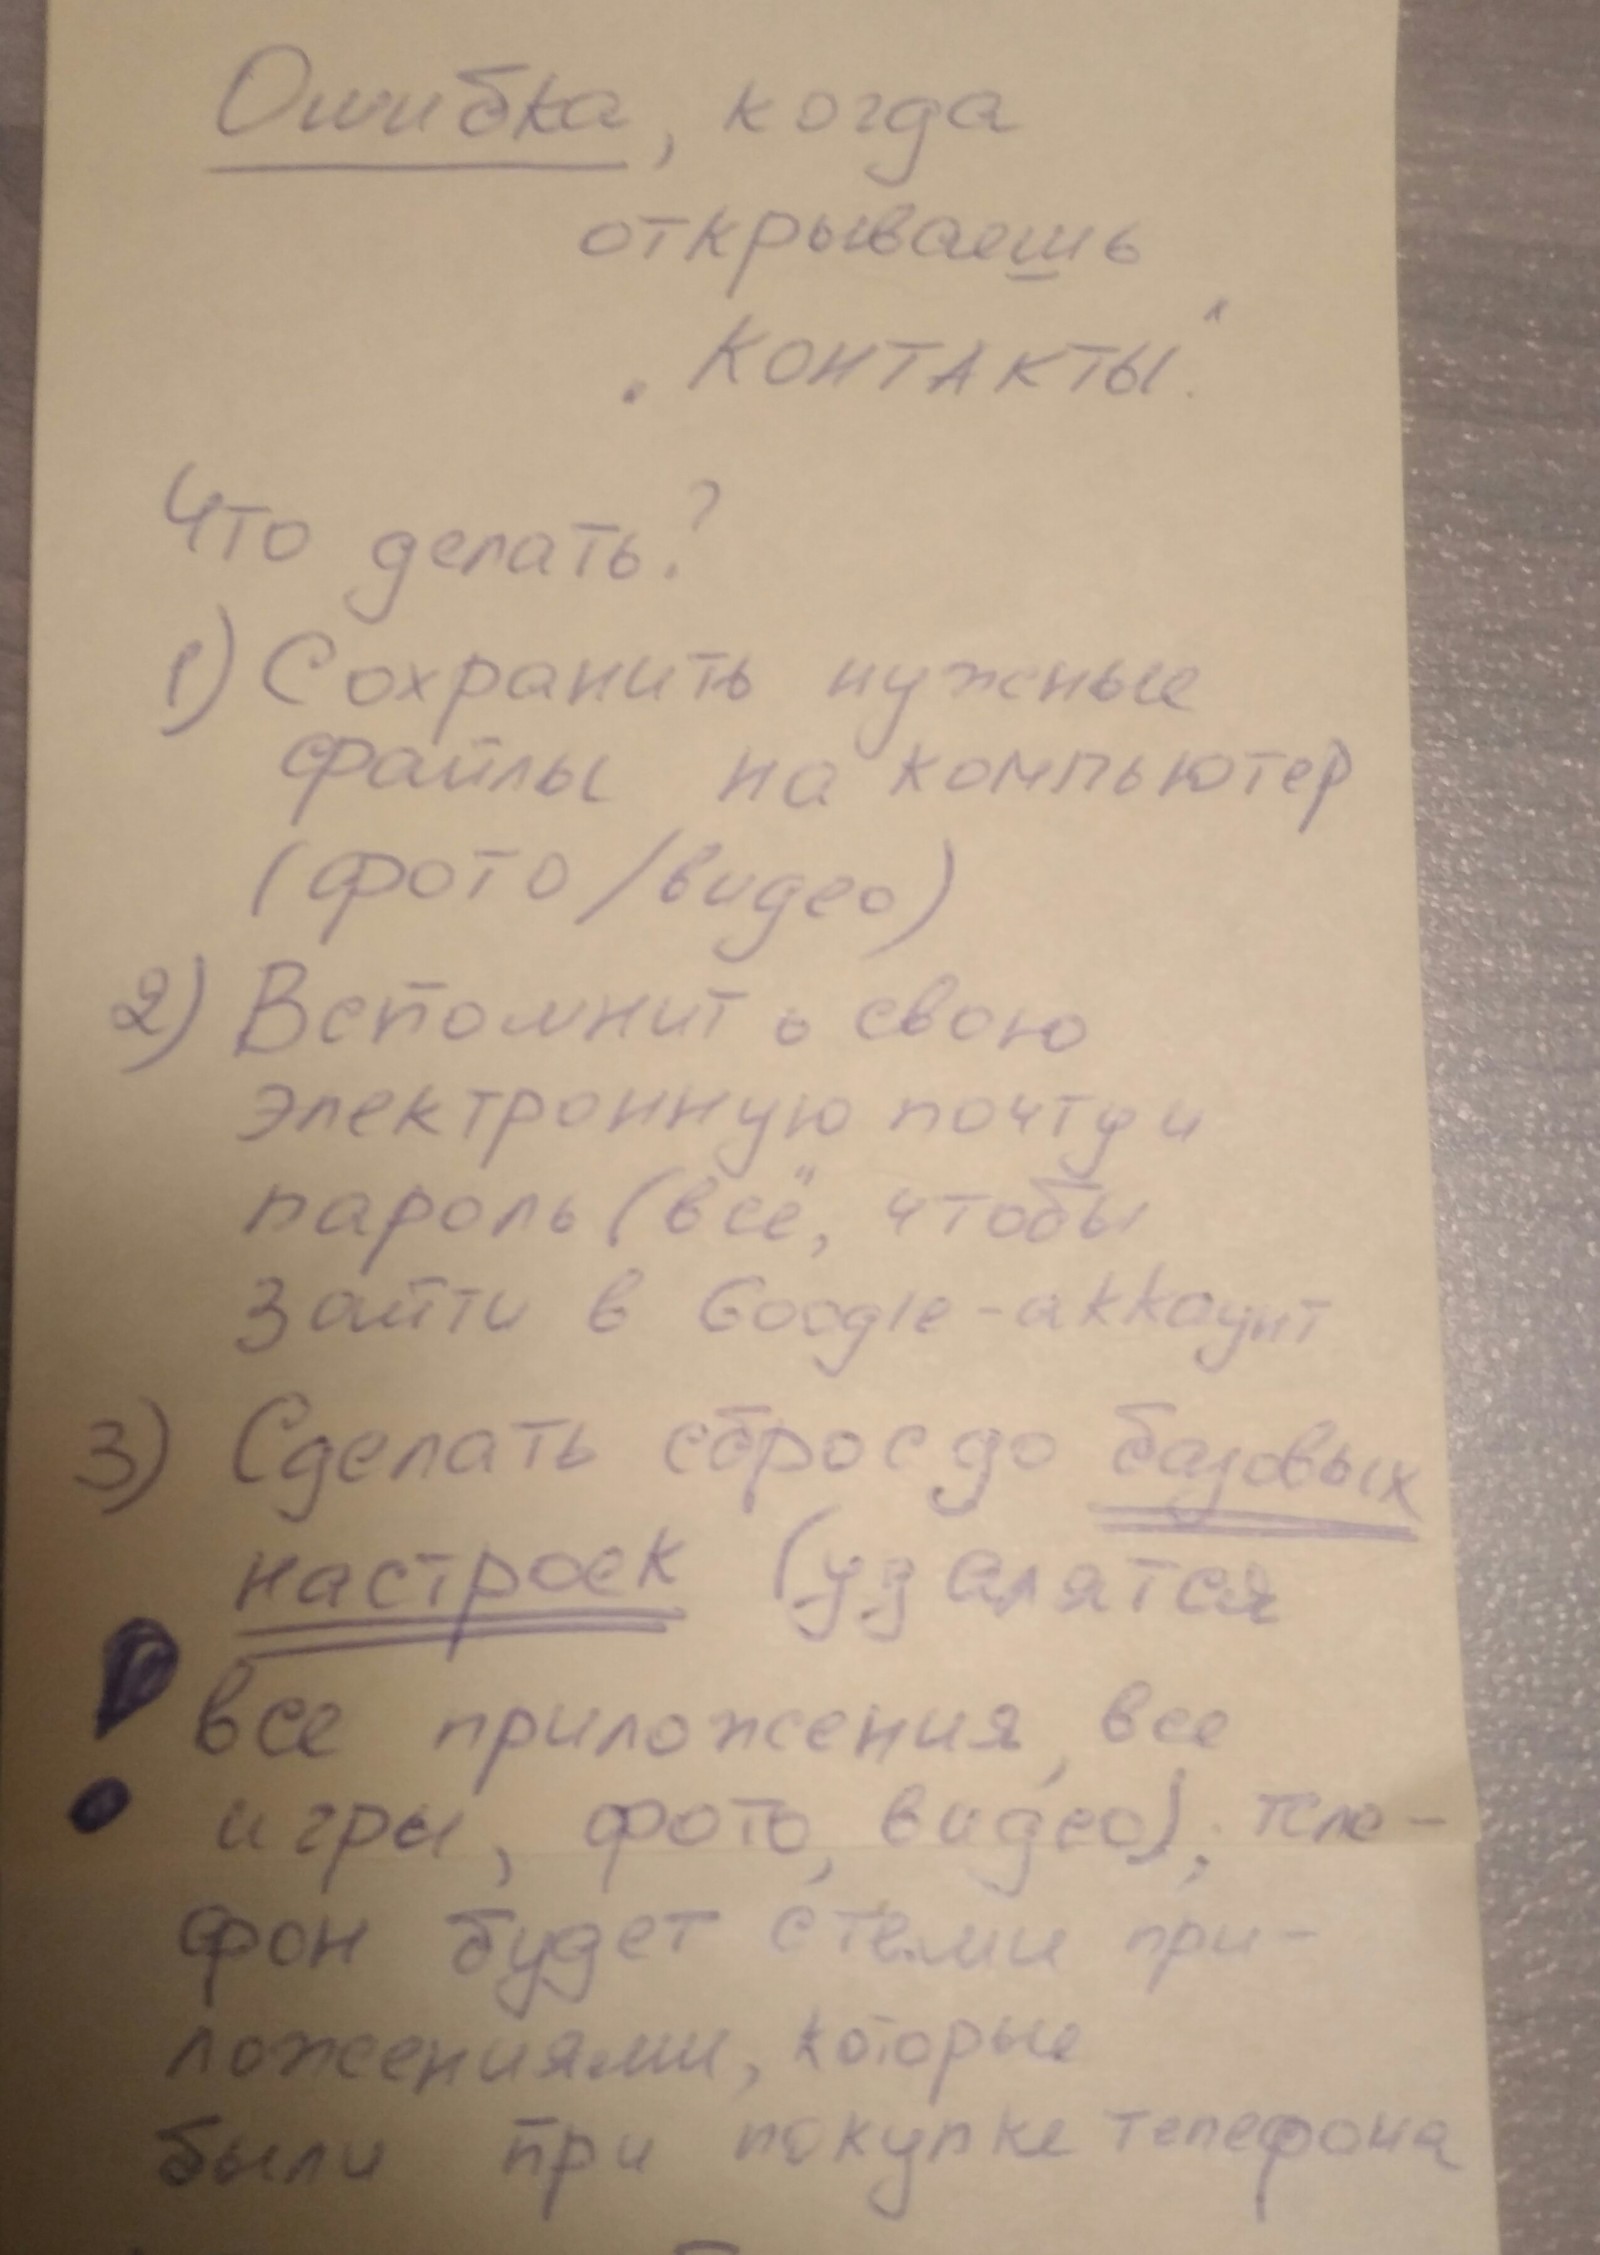 Ошибка, когда
открываешь
„Контакты."
Что делать?
1) Сохранить нужные
файлы на компьютер
(фото/видео)
2) Вспомнить свою
электронную почту и
пароль (всё, чтобы
зайти в Google-аккаунт
3) Сделать сброс до базовых
настроек (удалятся
! все приложения, все
игры, фото, видео); теле-
фон будет с теми при-
ложениями, которые
были при покупке телефона